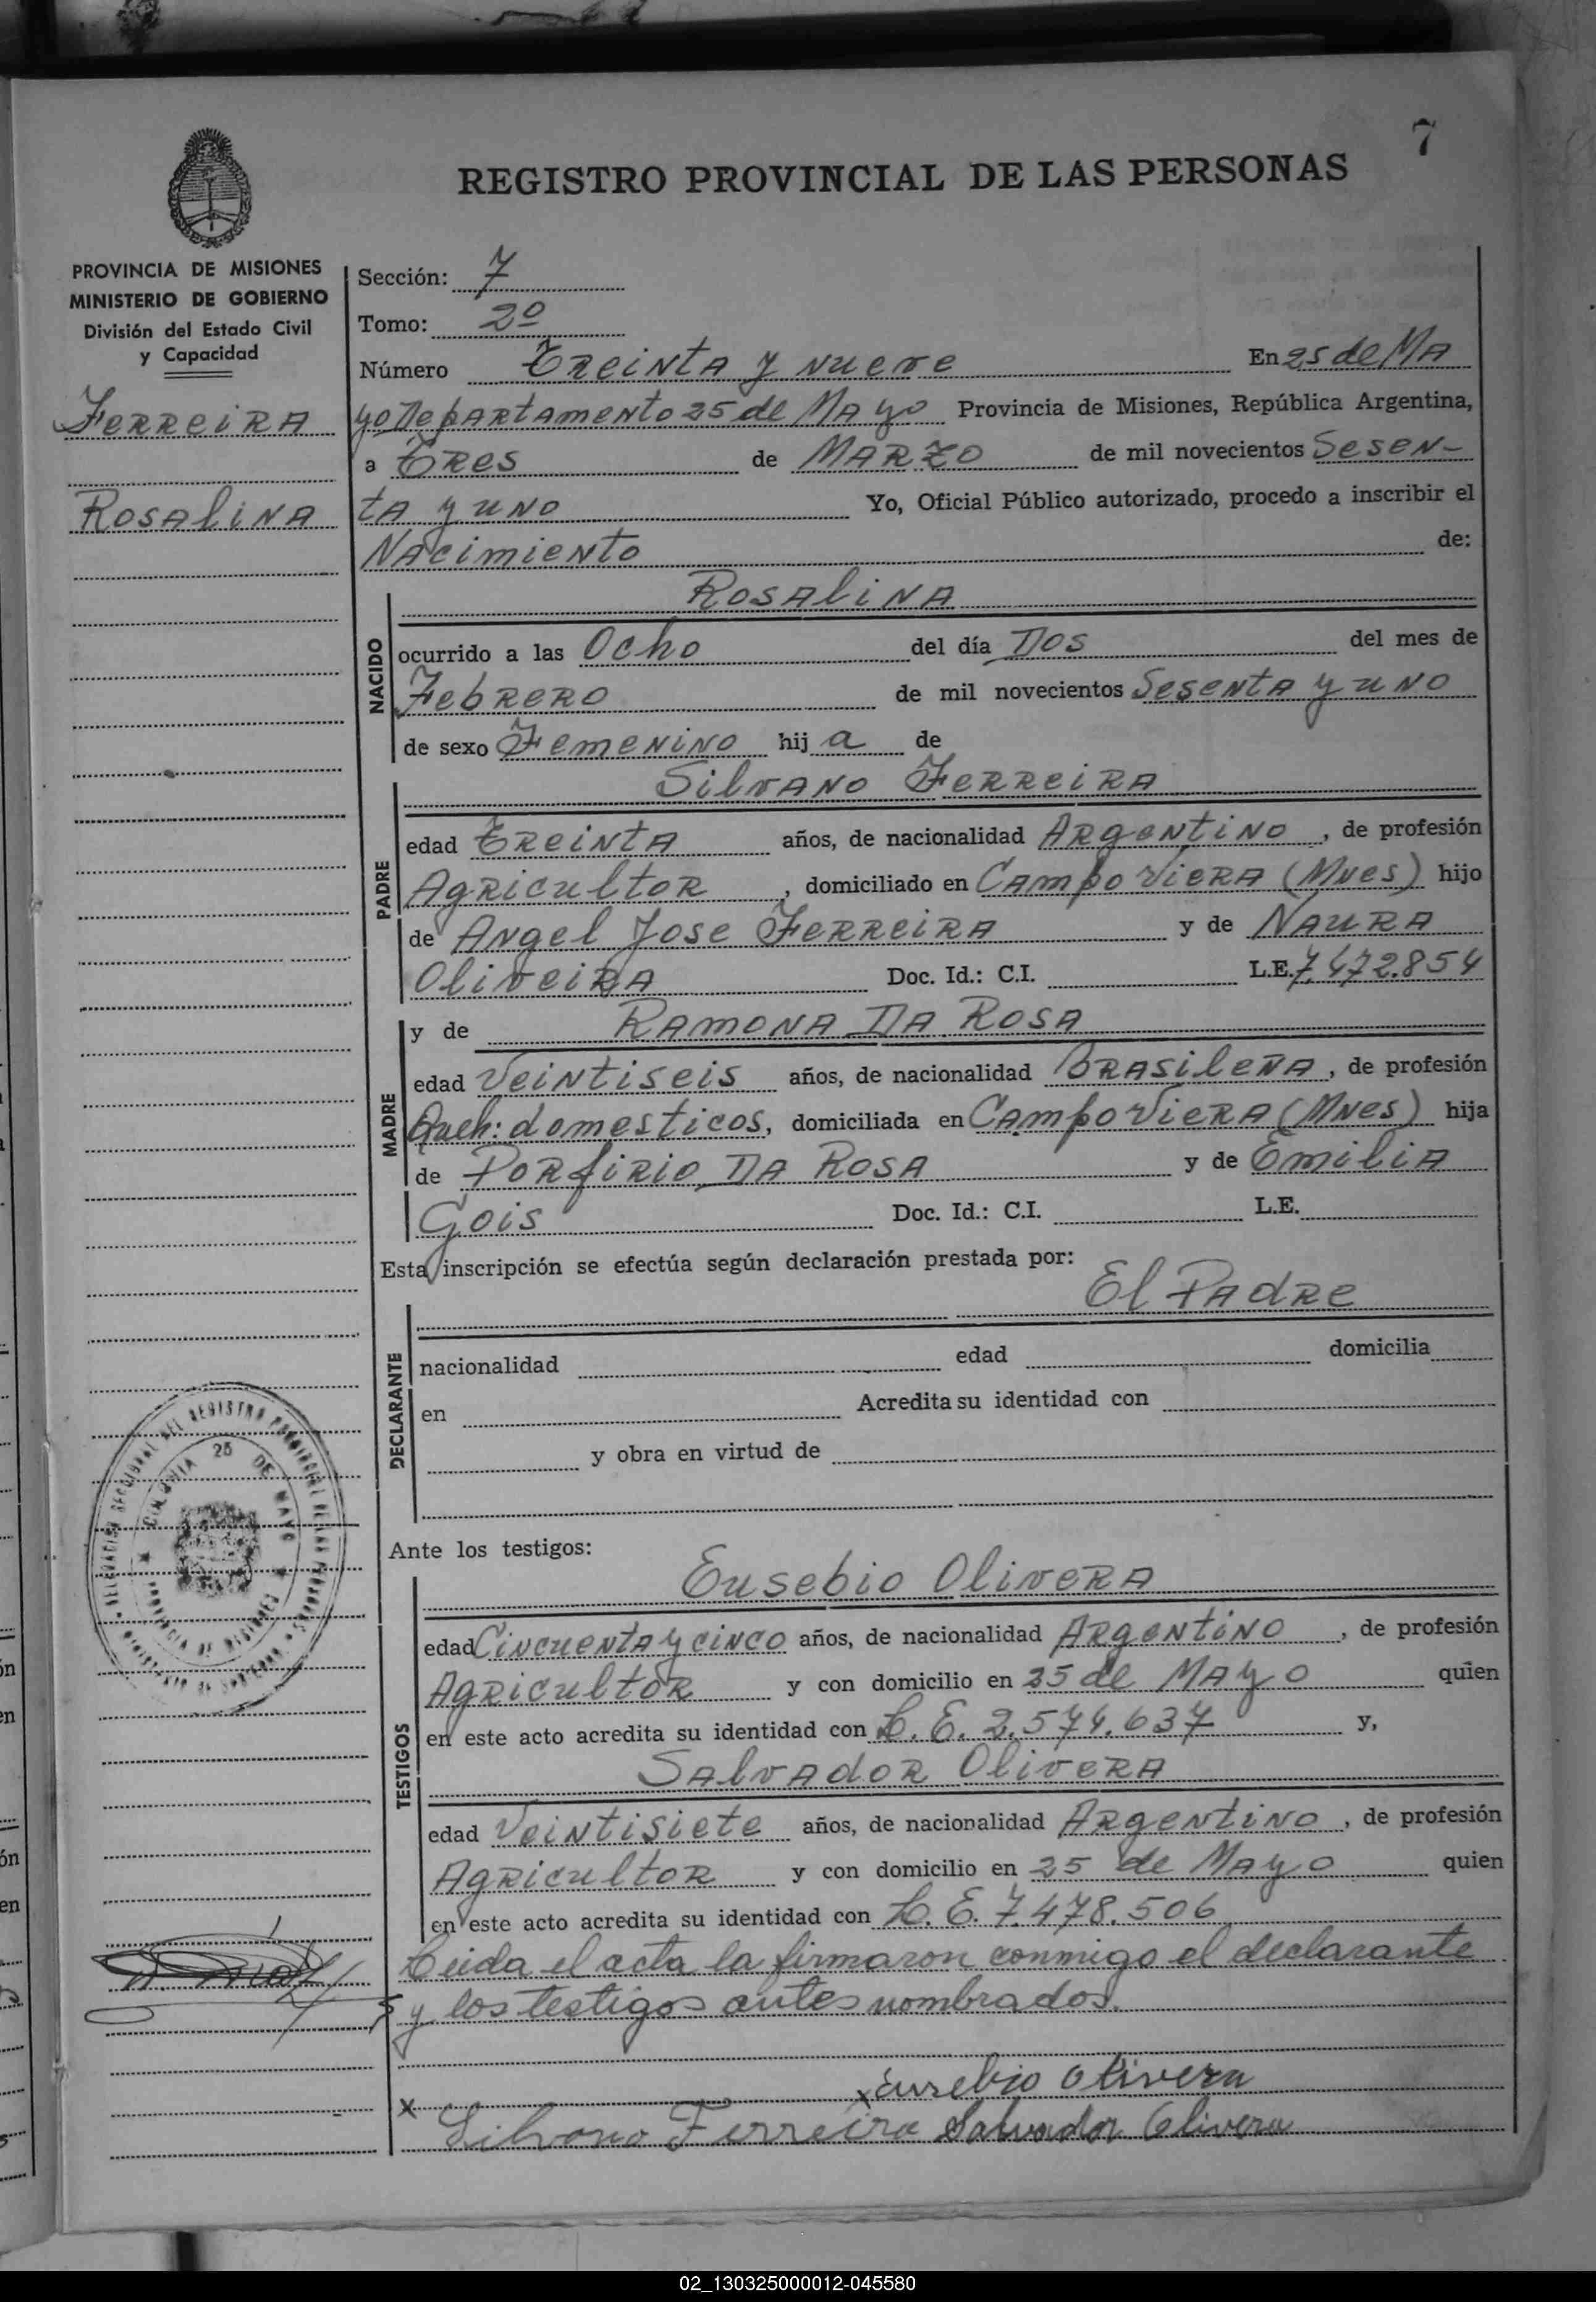 7
REGISTRO PROVINCIAL DE LAS PERSONAS
PROVINCIA DE MISIONES
MINISTERIO DE GOBIERNO
División del Estado Civil
y Capacidad
FERREIRA
ROSALINA
Sección: 7
Tomo: 2º
Número Treinta y nueve En 25 de Ma
yo Departamento 25 de Mayo Provincia de Misiones, República Argentina,
a Tres de Marzo de mil novecientos Sesen-
ta y uno Yo, Oficial Público autorizado, procedo a inscribir el
Nacimiento de:
NACIDO
Rosalina
ocurrido a las Ocho del día Dos del mes de
Febrero de mil novecientos Sesenta y uno
de sexo Femenino hij a de
PADRE
Silvano Ferreira
edad Treinta años, de nacionalidad Argentino, de profesión
Agricultor, domiciliado en Campo Viera (Mnes) hijo
de Angel Jose Ferreira y de Naura
Oliveira Doc. Id.: C.I. L.E. 7.472.854
MADRE
y de Ramona Da Rosa
edad Veintiseis años, de nacionalidad Brasileña, de profesión
Queh: domesticos, domiciliada en Campo Viera (Mnes) hija
de Porfirio Da Rosa y de Emilia
Gois Doc. Id.: C.I. L.E.
Esta inscripción se efectúa según declaración prestada por:
DECLARANTE
El Padre
nacionalidad edad domicilia
en Acredita su identidad con
y obra en virtud de
Ante los testigos:
TESTIGOS
Eusebio Olivera
edad Cincuenta y cinco años, de nacionalidad Argentino, de profesión
Agricultor y con domicilio en 25 de Mayo quien
en este acto acredita su identidad con L.E. 2.574.637 y,
Salvador Olivera
edad Veintisiete años, de nacionalidad Argentino, de profesión
Agricultor y con domicilio en 25 de Mayo quien
en este acto acredita su identidad con L.E. 7.478.506
Leida el acta la firmaron conmigo el declarante
y los testigos antes nombrados.
x Eusebio Olivera
x Silvano Ferreira Salvador Olivera
DELEGACION SECCIONAL DEL REGISTRO PROVINCIAL DE LAS PERSONAS
COLONIA 25 DE MAYO
PROVINCIA DE MISIONES
MINISTERIO DE GOBIERNO
02_130325000012-045580